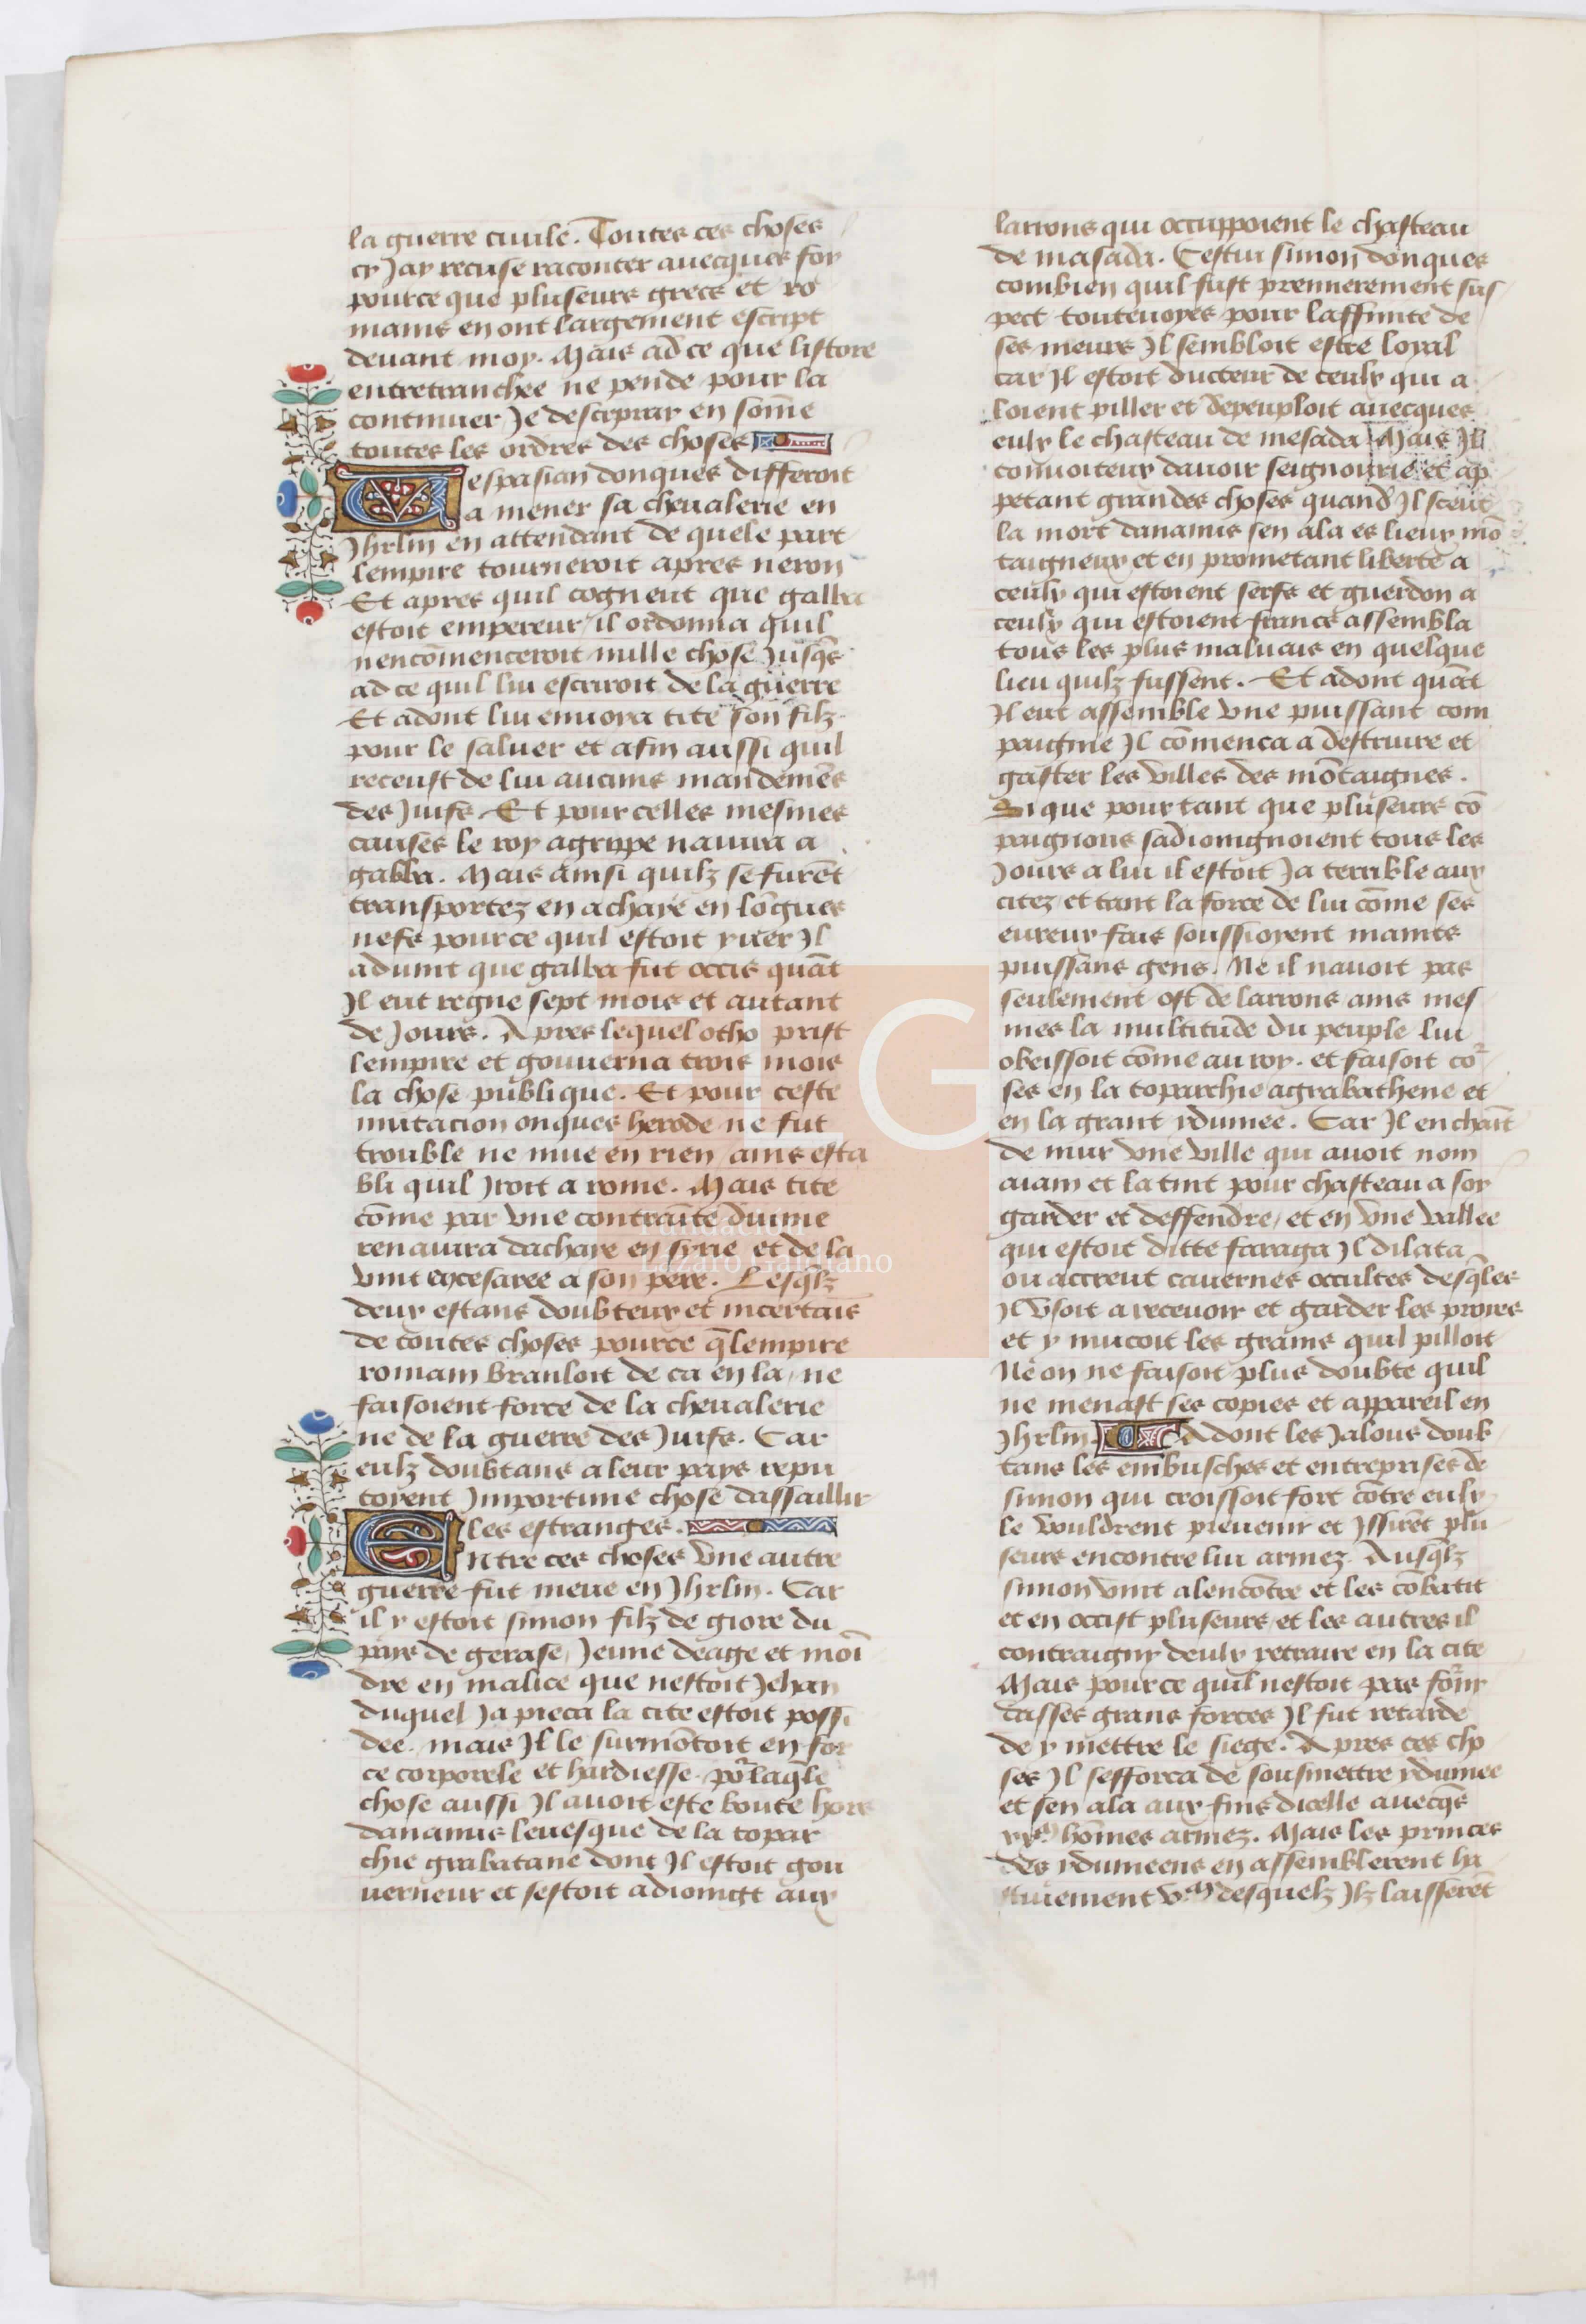 la guerre ciuile. Toutes ces choses
cy Jay recuse raconter auecques soy
pource que pluseurs grecs et ro
mains en ont largement escript
deuant moy. Mais ad ce que listore
entretranchee ne pende pour la
continuer Je descripray en som̄e
toutes les ordres des choses
Vespasian donques differoit
a mener sa cheualerie en
Jhrlm en attendant de quele part
lempire tourneroit apres neron
Et apres quil cogneut que galba
estoit empereur il ordonna quil
nencom̄enceroit nulle chose Jusq̄s
ad ce quil lui escriroit de la guerre
Et adont lui enuoya tite son filz
pour le saluer et afin aussi quil
receust de lui aucuns mandemēs
des Juifs. Et pour celles mesmes
causes le roy agrippe nauira a
galba. Mais ainsi quilz se furēt
transportez en achaye en lōgues
nefs pource quil estoit yuer Jl
aduint que galba fut occis quāt
Jl eut regne sept mois et autant
de Jours. Apres lequel otho prist
lempire et gouuerna trois mois
la chose publique. Et pour ceste
mutacion onques herode ne fut
trouble ne mue en rien ains esta
bli quil Jroit a rome. Mais tite
cōme par vne contraīte diuine
renauira dachaye en syrie et de la
vint en cesaree a son pere. Lesq̄lz
deux estans doubteux et incertais
de toutes choses pource q̄ lempire
romain branloit de ca en la, ne
faisoient force de la cheualerie
ne de la guerre des Juifs. Car
eulz doubtans a leur pays repu
toyent Jmportune chose dassaillir
les estranges.
Entre ces choses vne autre
guerre fut meue en Jhrlm. Car
il y estoit simon filz de giore du
pays de gerase, Jeune deage et moī
dre en malice que nestoit Jehan
duquel Ja pieca la cite estoit possi
dee. mais Jl le surmōtoit en for
ce corporele et hardiesse. por laq̄le
chose aussi Jl auoit este boute hors
danamis leuesque de la topar
chie grabatane dont Jl estoit gou
uerneur et sestoit adioingt aux
larrons qui occuppoient le chasteau
de masada. Cestui simon donques
combien quil fust premierement sus
pect toutenoyes pour laffinite de
ses meurs Jl sembloit estre loyal
car Jl estoit ducteur de ceulx qui a
loient piller et depeuploit auecques
eulx le chasteau de mesada Mais Jl
conuoiteux dauoir seignourie et ap
petant grandes choses quand Jl sceut
la mort danamis sen ala es lieux mō
taigneux et en prometant liberte a
ceulx qui estoient serfs et guerdon a
ceulx qui estoient francs assembla
tous les plus maluais en quelque
lieu quilz fussent. Et adont quāt
Jl eut assemble vne puissant com
paignie Jl cōmenca a destruire et
gaster les villes des mōtaignes.
Si que pour tant que pluseurs cō
paignons sadioingnoient tous les
Jours a lui il estoit Ja terrible aux
citez et tant la force de lui cōme ses
eureux fais soussioyent maintes
puissans gens. Ne il nauoit pas
seulement ost de larrons ains mes
mes la multitude du peuple lui
obeissoit cōme au roy. et faisoit cor
ses en la toparchie agrabathene et
en la grant ydumee. Car Jl enchaīt
de mur vne ville qui auoit nom
aiam et la tint pour chasteau a soy
garder et deffendre, et en vne vallee
qui estoit ditte faraga Jl dilata
ou accreut cauernes occultes desq̄les
Jl vsoit a receuoir et garder les proyes
et y mucoit les grains quil pilloit
Ne on ne faisoit plus doubte quil
ne menast ses copies et appareil en
Jhrlm. Adont les Jalous doub
tans les embusches et entreprises de
simon qui croissoit fort cōtre eulx
le vouldrent preuenir et Jssirēt plu
seurs encontre lui armez. Ausq̄lz
simon vint alencōtre et les cōbatit
et en occist pluseurs et les autres il
contraigny deulx retraire en la cite
Mais pource quil nestoit pas forny
dasses grans forces Jl fut retarde
de y mettre le siege. Apres ces cho
ses Jl sefforca de sousmettre ydumee
et sen ala aux fins dicelle auecq̄s
xxm hōmes armez. Mais les princes
des ydumeens en assemblerent ha
stiuement vm desquelz Jlz laisserēt
FLG
Fundación
Lázaro Galdiano